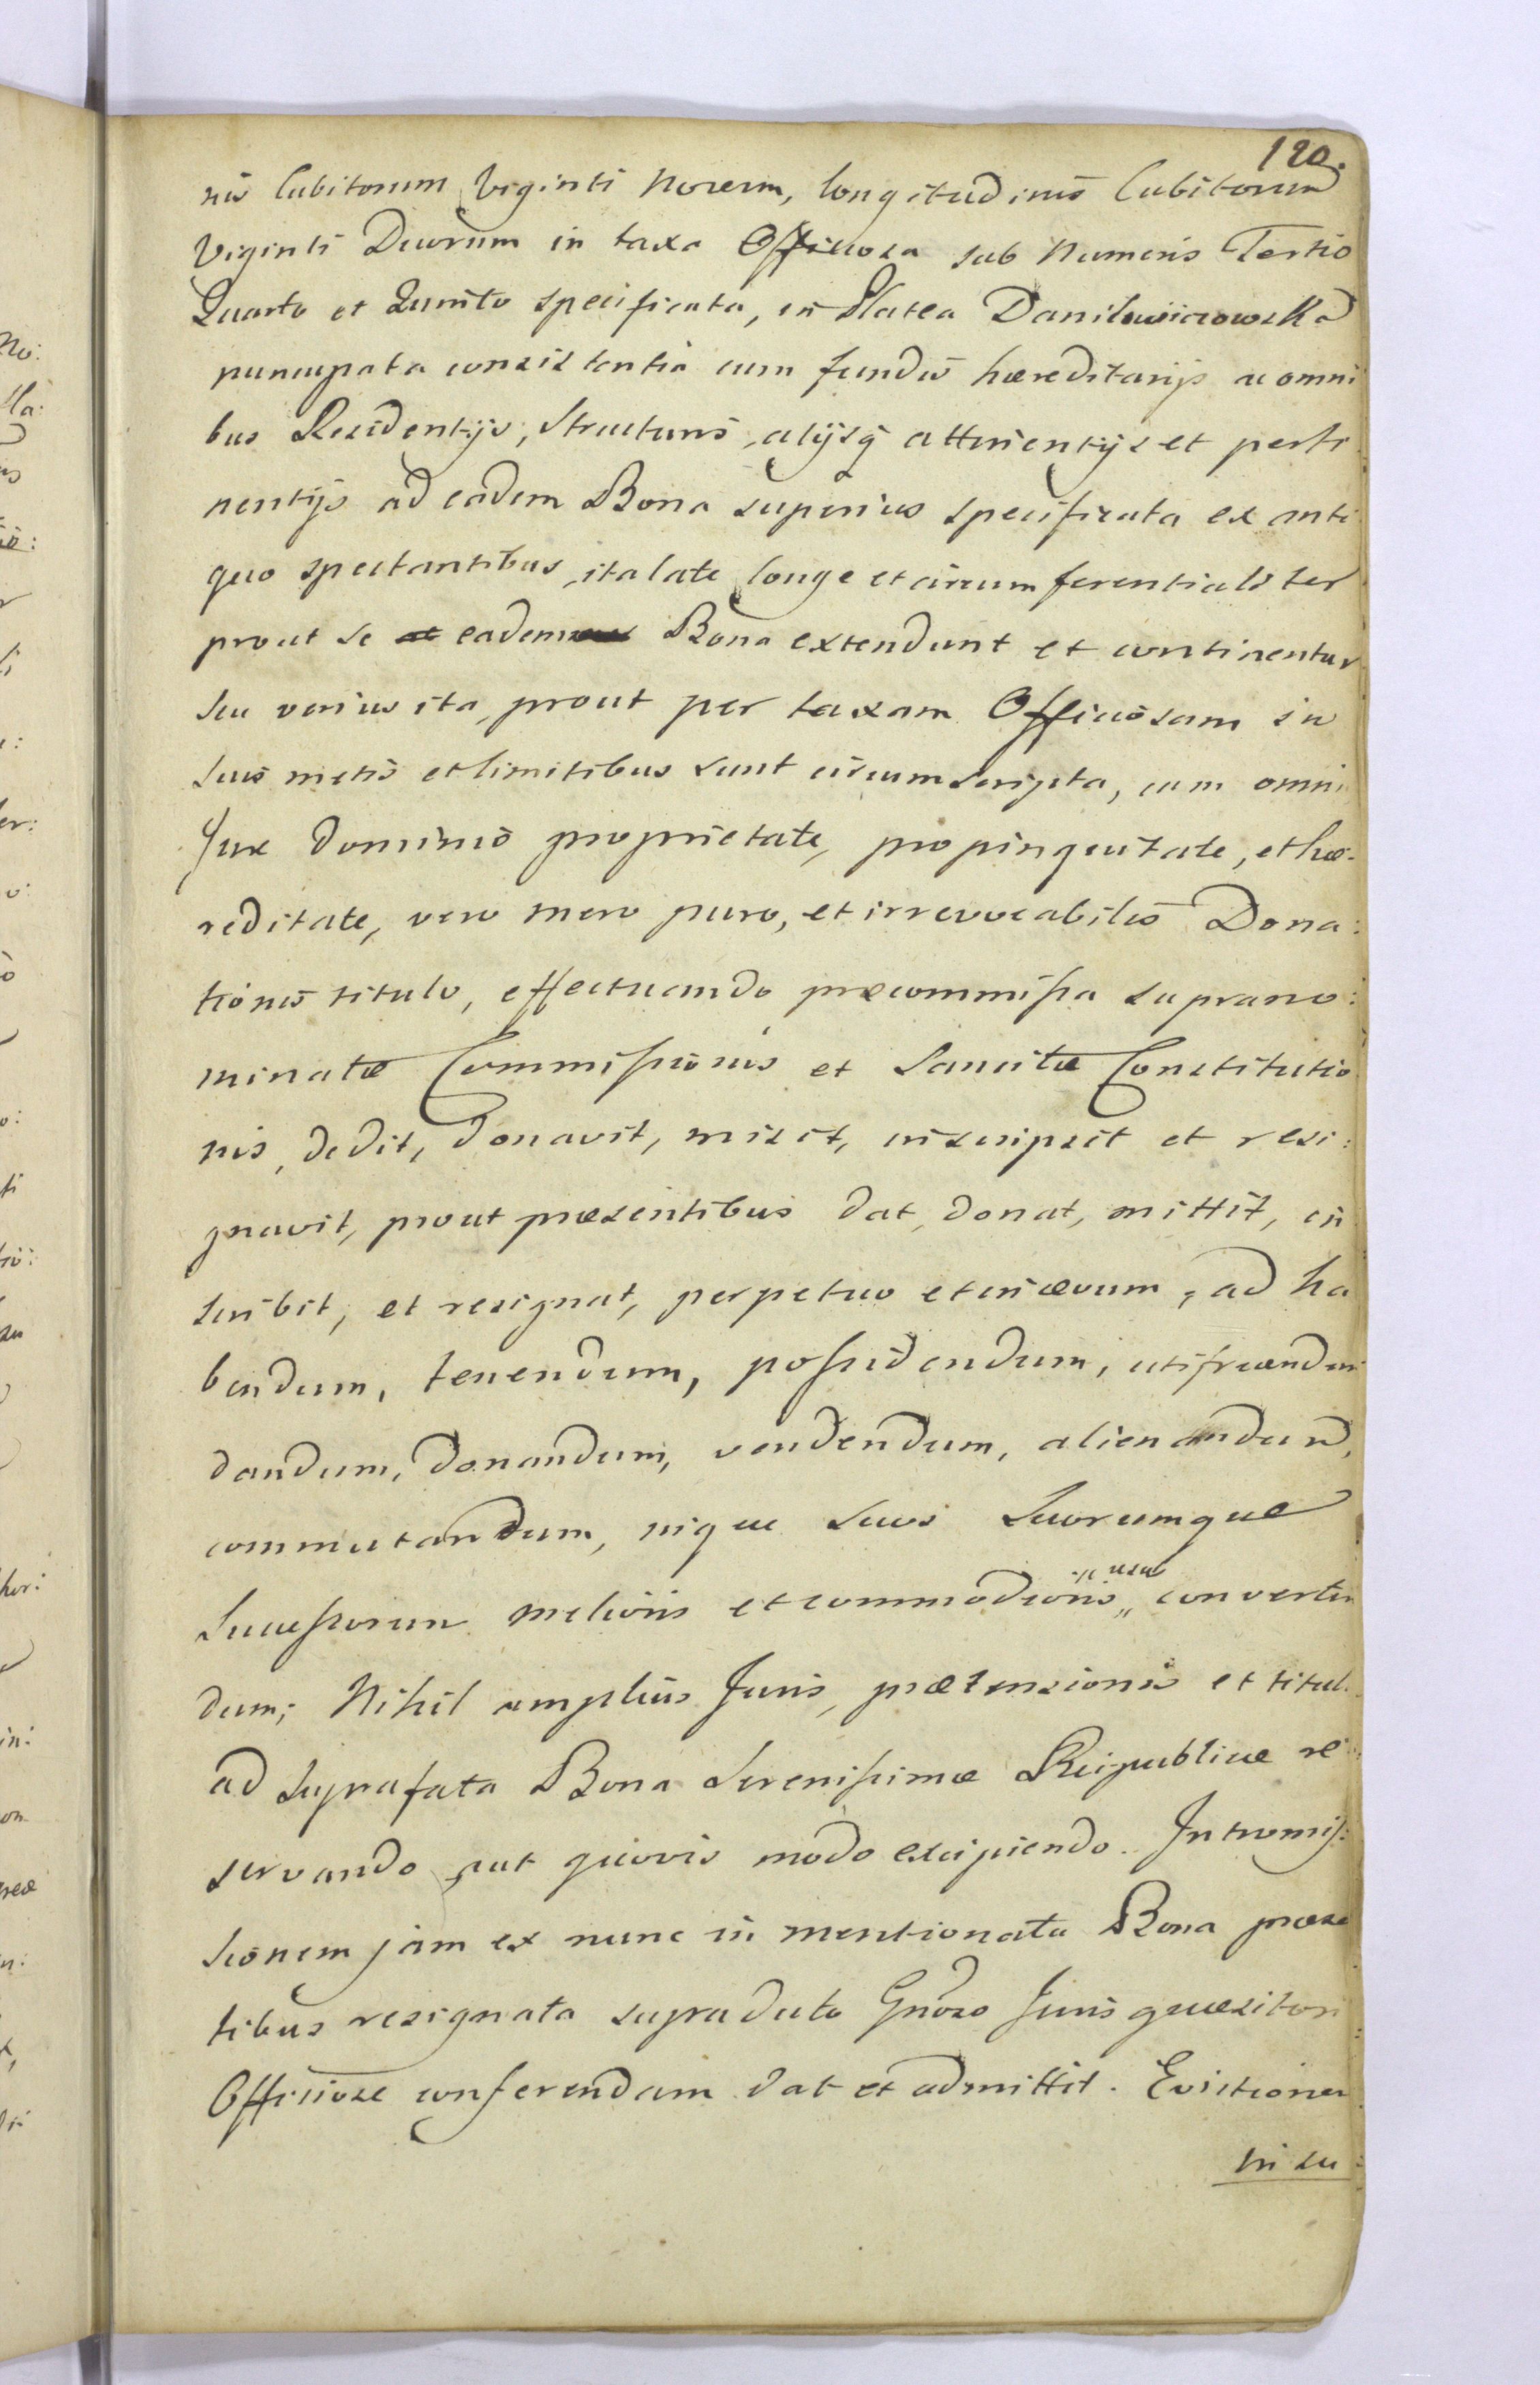 120.
nis Cubitorum Viginti Novem, longitudinis Cubitorum
Viginti Duorum in taxa Officiosa sub Numeris Tertio
Quarto et Quinto specificata, in Platea Danilowiczowska
nuncupata consistentia cum fundis hæreditarijs ac omni
bus Residentijs, Structuris, alijsq attinentijs et perti
nentijs ad eadem Bona superius specificata ex anti
quo spectantibus, ita late longe et circumferentialiter
prout se eadem Bona extendunt et continentur
seu verius ita, prout per taxam Officiosam in
suis metis et limitibus sunt circumscripta, cum omni
Jure Dominio proprietate, propinquitate, et hæ-
reditate, vero mero puro, et irrevocabilis Dona:
tionis titulo, effectuando præcommissa suprano:
minatæ Commissionis et Sancitæ Constitutio
nis, dedit, donavit, misit, inscripsit et resi:
gnavit, prout præsentibus dat, donat, mittit, in
scribit, et resignat, perpetuo et in ævum, ad ha
bendum, tenendum, possidendum, utifruendum
dandum, donandum, vendendum, alienandum,
commutandum, inque suos Suorumque
Successorum melioris et commodioris " usus converten
dum; Nihil amplius Juris, prætensionis et tituli
ad suprafata Bona Serenissimæ Reipublicæ re
servando aut quovis modo excipiendo. Intromis:
sionem jam ex nunc in mentionata Bona præsen
tibus resignata supradicto Gnoso Juris quæsitori
Officiose conferendam dat et admittit. Evictionem
in su